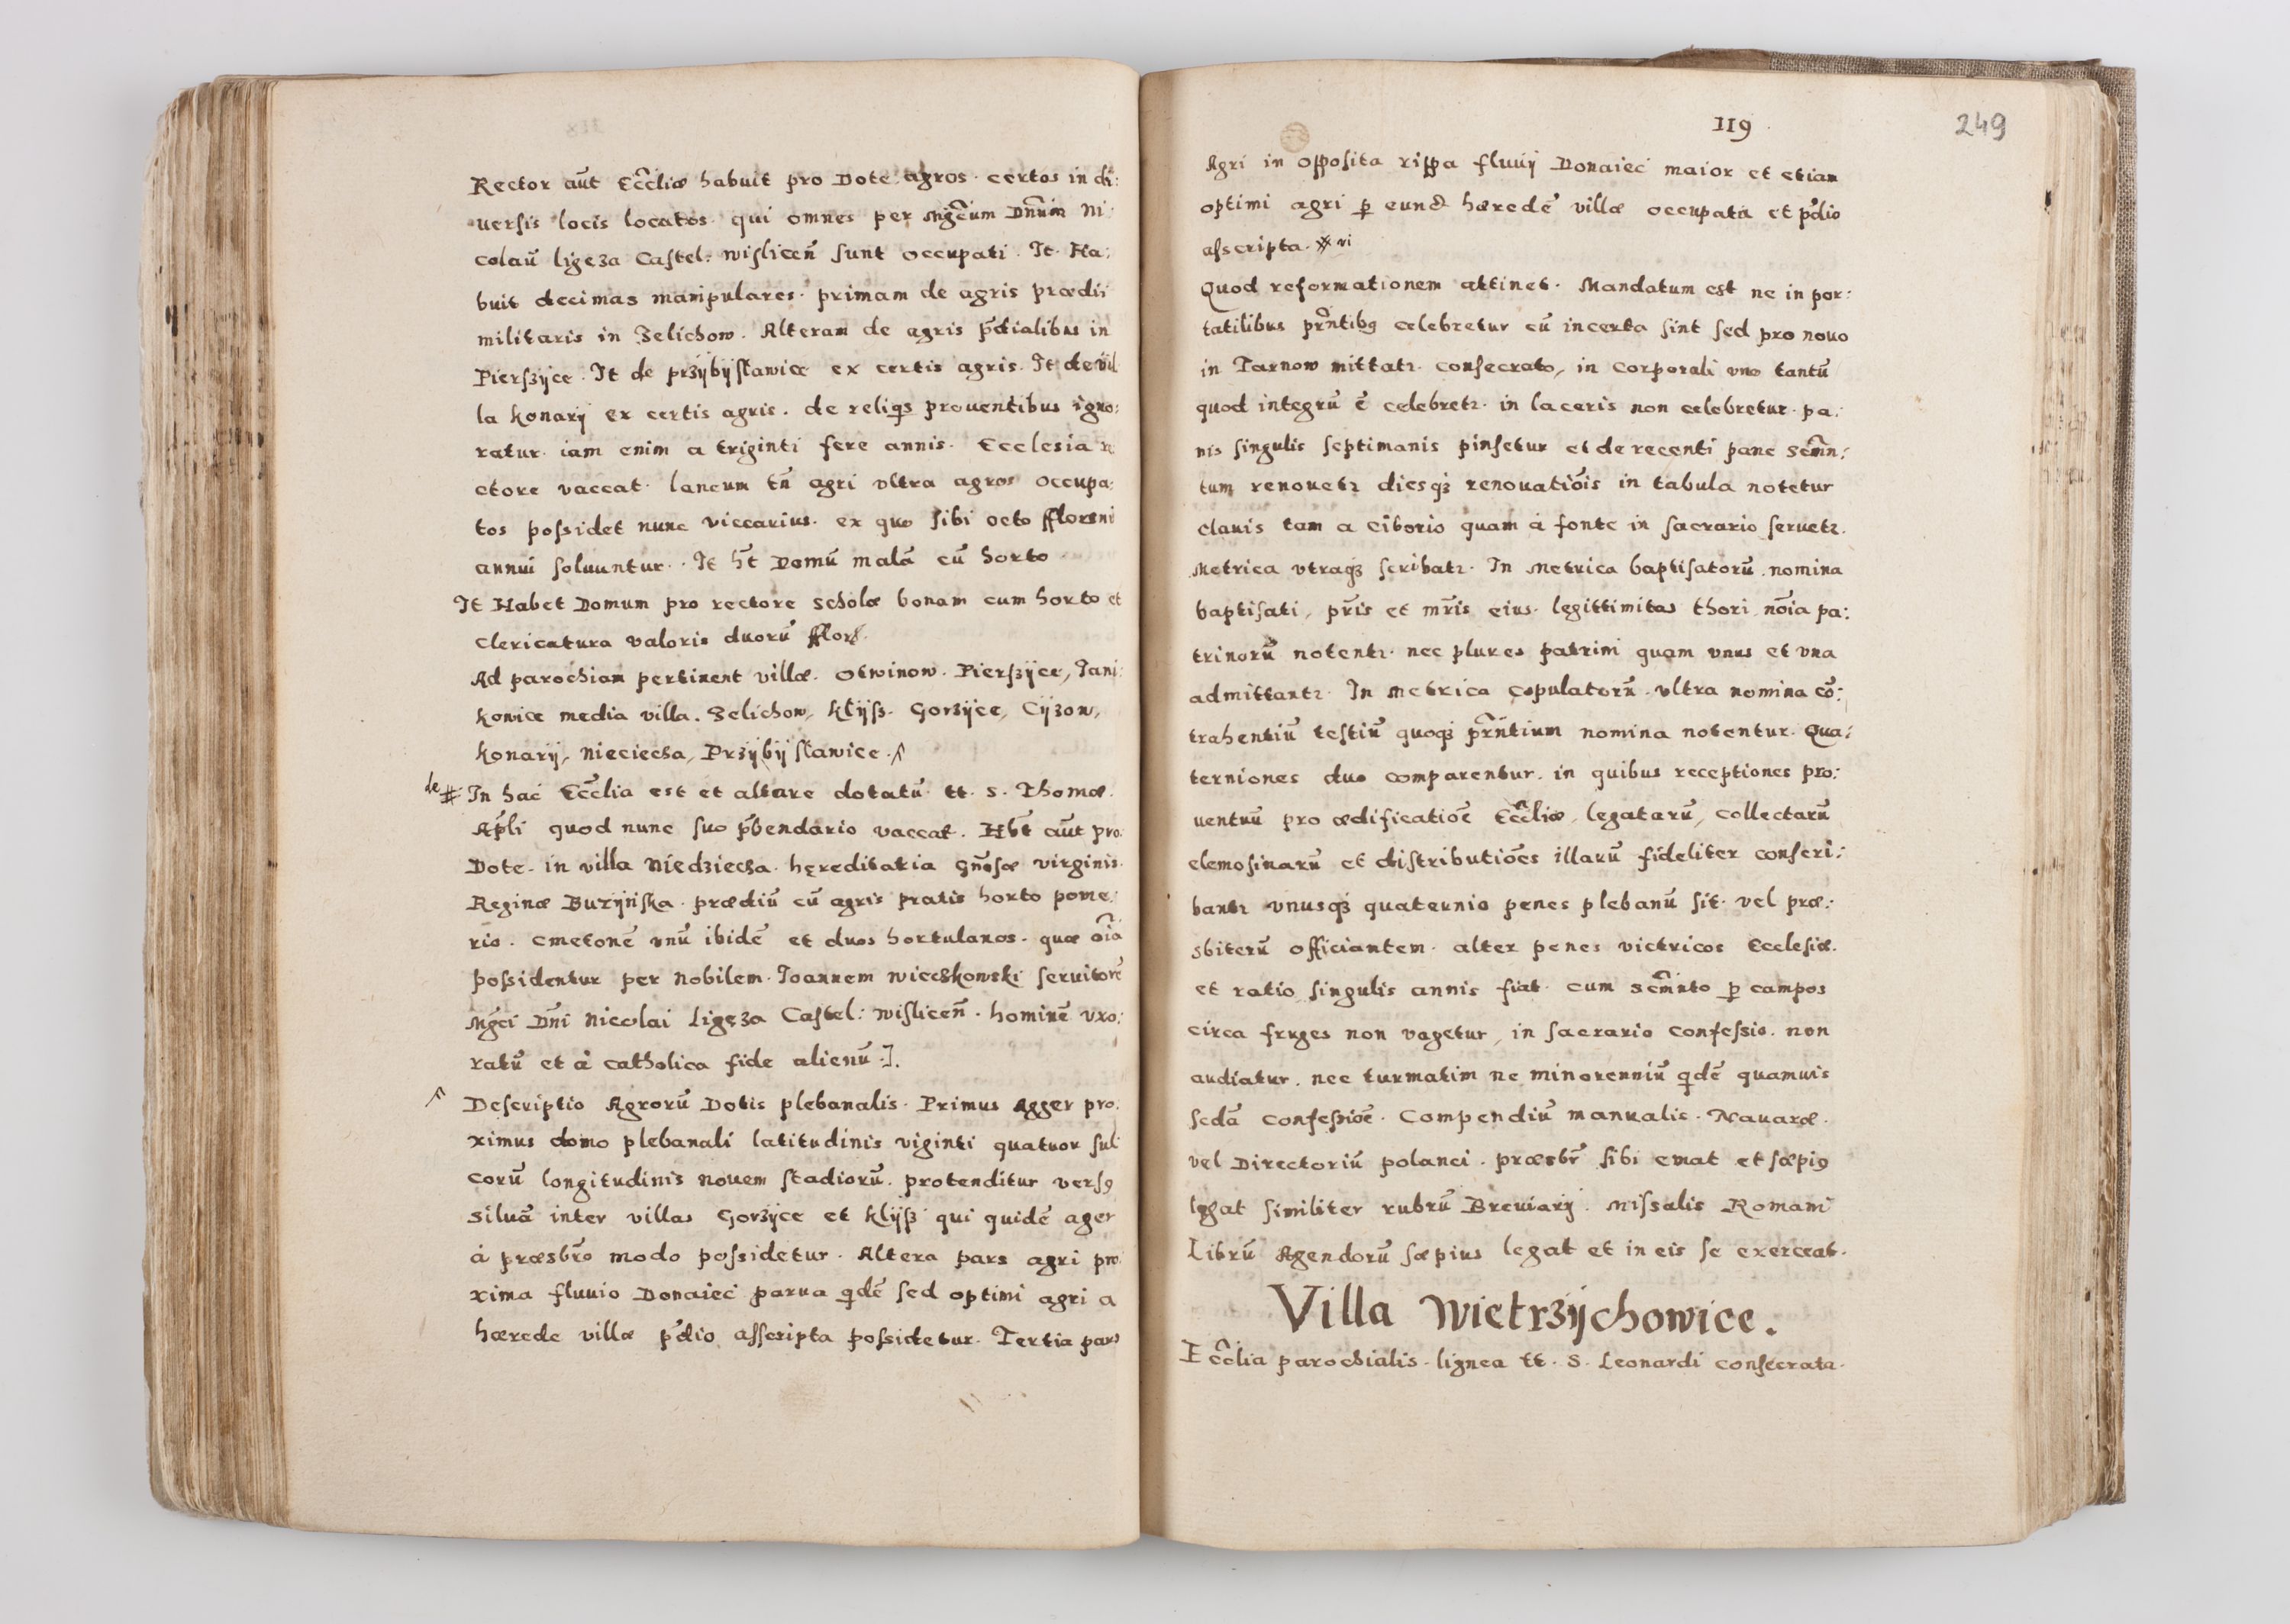 Rector aūt Eccłiæ habuit pro Dote agros certos in di:
uersis locis locatos qui omnes per Mgcum Dnum Ni
colaū ligeza Castel: wislicen̄ sunt occupati. It. Ha:
buit decimas manipulares primam de agris prædii
militaris in Zelichow. Alteram de agris p̄dialibus in
Pierszÿce. It de przÿbÿsławice ex certis agris. It de vil
la konarÿ ex certis agris. de reliqs prouentibus igno:
ratur iam enim a triginti fere annis. Ecclesia re
ctore vaccat. laneum tn̄ agri vltra agros occupa:
tos possidet nunc viccarius. ex quo sibi octo floreni
annui soluuntur. It ht̄ Domū malā cū horto
It Habet Domum pro rectore scholæ bonam cum horto et
clericatura valoris duorū flor.
Ad parochiam pertinent villæ. Otwinow. Pierszÿce, Jani:
kowice media villa. Zelichow, kłÿsz. Gorzÿce, Cÿzow,
konarÿ, Nieciecza, Przÿbÿsławice.
de # In hac Eccłia est et altare dotatū tt. s. Thomæ.
Ap̄li quod nunc suo p̄bendario vaccat. Hb̄t aūt pro
Dote. in villa Niedziecza. hęreditaria Gn̄osæ virginis
Reginæ Burÿńska. prædiū cū agris pratis horto pome:
rio. cmetonē vnū ibidē et duos hortulanos. quæ oīa
possidentur per nobilem Joannem wiecskowski seruitorē
Mgci Dn̄i Nicolai Ligęza Castel: wislicen̄. hominē vxo:
ratū et à catholica fide alienū.].
Descriptio Agrorū Dotis plebanalis. Primus Agger pro:
ximus domo plebanali latitudinis viginti quatuor sul
corū longitudinis nouem stadiorū. protenditur vers9
siluā inter villas Gorzÿce et kłÿsz qui quidē ager
à præsbr̄o modo possidetur. Altera pars agri pro
xima fluuio Donaiec parua qdē sed optimi agri a
hærede villæ p̄dio asscripta possidetur. Tertia pars
119
249
Agri in opposita rippa fluuÿ Donaiec maior et etiam
optimi agri p eund hæredē villæ occupata et p̄dio
asscripta.
Quod reformationem attinet. Mandatum est ne in por:
tatilibus pr̄ntib9 celebretur cū incerta sint sed pro nouo
in Tarnow mittatr. consecrato, in corporali vno tantū
quod integrū ē celebretr. in laceris non celebretur. pa:
nis singulis septimanis pinsetur et de recenti pane scm̄n:
tum renouetr diesqʒ renouatiōis in tabula notetur
clauis tam a ciborio quam à fonte in sacrario seruetr.
Metrica vtraqʒ scribatr. In Metrica baptisatorū nomina
baptisati, pr̄is et mr̄is eius. legittimitas thori nōia pa:
trinorū notentr. nec plures patrini quam vnus et vna
admittantr. In Metrica copulatorū. vltra nomina cō:
trahentiū testiū quoqʒ pr̄ntium nomina notentur. Qua:
terniones duo comparentur. in quibus receptiones pro:
uentuū pro ædificatiōe Eccłiæ, legatarū, collectarū
elemosinarū et distributiōes illarū fideliter conscri:
bantr vnusqʒ quaternio penes plebanū sit. vel præ:
sbiterū officiantem. alter penes victricos Ecclesiæ.
et ratio singulis annis fiat. cum scm̄nto p campos
circa fruges non vagetur, in sacrario confessio. non
audiatur. nec turmatim ne minorenniū qdē quamuis
sedā confessiōe. Compendiū manualis. Nauaræ.
vel Directoriū polanci. præsbr̄ sibi emat et sæpi9
legat similiter rubrū Breuiarÿ. Missalis Romani
Librū Agendorū sæpius legat et in eis se exerceat.
Villa Wietrzÿchowice.
Eccłia parochialis. lignea tt. S. Leonardi consecrata.